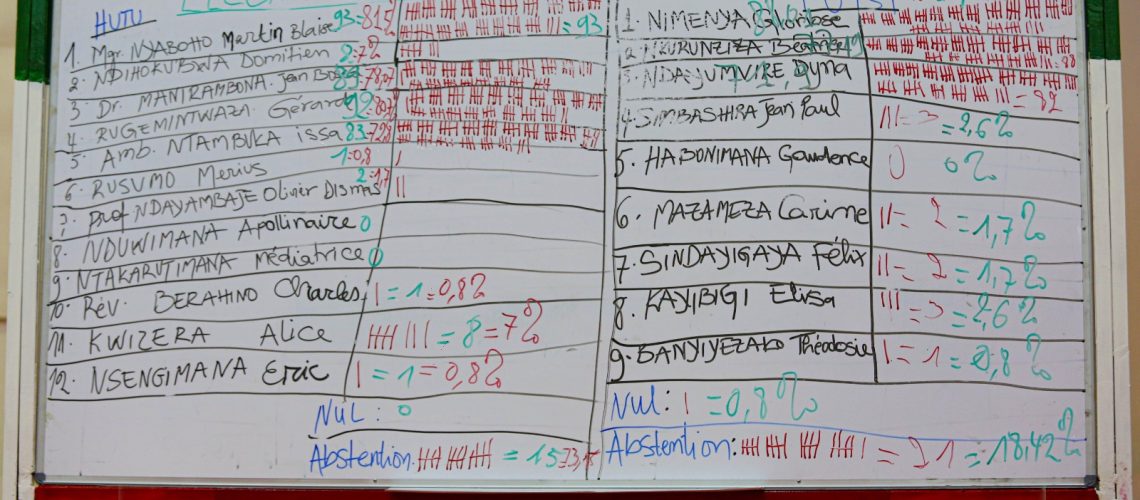 HUTU
1. Mgr. NYABOHO Martin Blaise 93=81,5 = 93
2. NDIHOKUBWA Domitien 8=7%
3. Dr. MANIRAMBONA Jean Bosco
4. RUGEMINTWAZA Gérard 92
5. Amb. NTAMBUKA issa 83
6. RUSUMO Merius 1=0,8
7. Prof NDAYAMBAJE Olivier Dismas 2=1,7
8. NDUWIMANA Apollinaire 0
9. NTAKARUTIMANA Médiatrice 0
10. Rév. BERAHINO Charles = 1=0,8%
11. KWIZERA Alice = 8=7%
12. NSENGIMANA Eric = 1=0,8%
NUL: 0
Abstention = 15
1. NIMENYA
2. NKURUNZIZA
3. Dyna = 82
4. SIMBASHIRA Jean Paul = 3 = 2,6%
5. HABONIMANA Gaudence 0 0%
6. MAZAMEZA Carime = 2 = 1,7%
7. SINDAYIGAYA Félix = 2 = 1,7%
8. KAYIBIGI Elisa = 3 = 2,6%
9. BANYIYEZAKO Théodosie = 1 = 0,8%
Nul: =0,8%
Abstention: = 21 = 18,42%